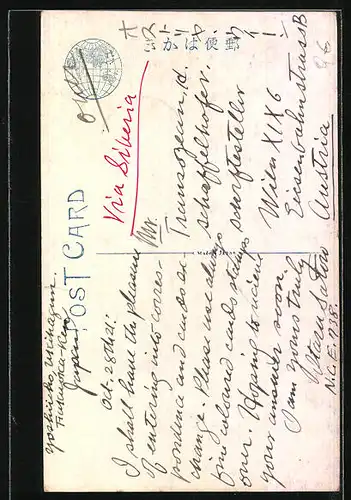 郵便はかき
POST CARD
Via Siberia
Yoshiicho, Uchagun.
Fukuoka-Ken
Japan
Oct. 28th 21.
I shall have the pleasure
of entering into corres-
pondence and cards ex
change. Please use always
fine colored cards stamps
over. Hoping to receive
your answer soon.
I am yours truly
N.C.E. 1738.
Mr.
Transozean, i.d.
Schaffelhofer.
Schriftsteller
Wien XIX 6
Eisenbahnstrasse
Austria